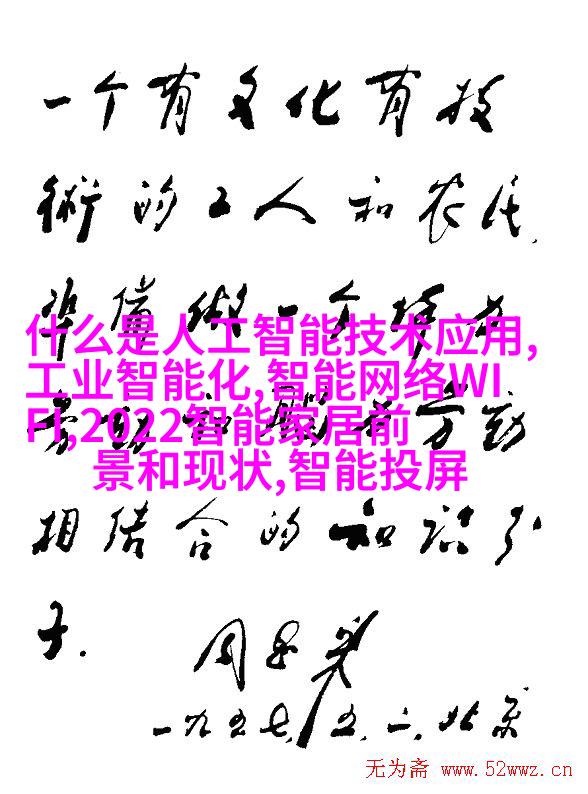 一个有文化有技
術的工人和农民,
备做一个
什么是人工智能技术应用,
工业智能化,智能网络WI
FI,2022智能家居前
景和现状,智能投屏
劳动
相结合的知识分
子.
周恩来
一九五七,五,一,北京
无为斋 www.52wwz.cn